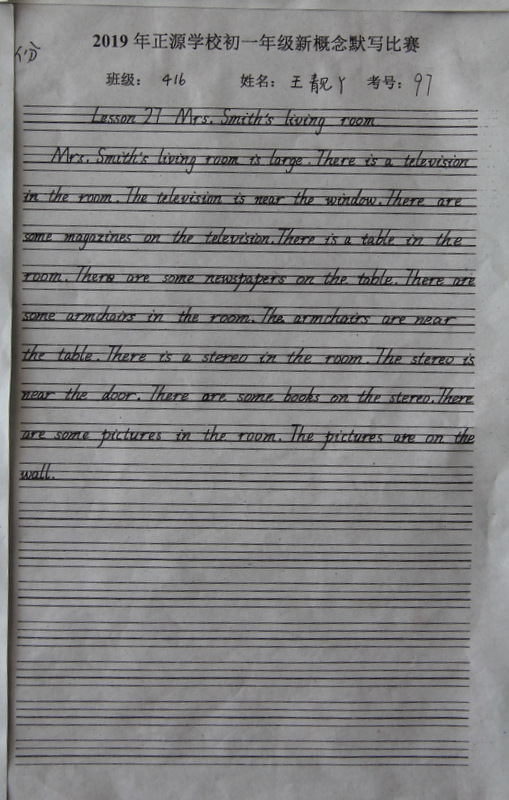 2019 年正源学校初一年级新概念默写比赛
班级： 416 姓名： 王靓丫 考号： 97
Lesson 27 Mrs. Smith's living room
Mrs. Smith's living room is large. There is a television
in the room. The television is near the window. There are
some magazines on the television. There is a table in the
room. There are some newspapers on the table. There are
some armchairs in the room. The armchairs are near
the table. There is a stereo in the room. The stereo is
near the door. There are some books on the stereo. There
are some pictures in the room. The pictures are on the
wall.